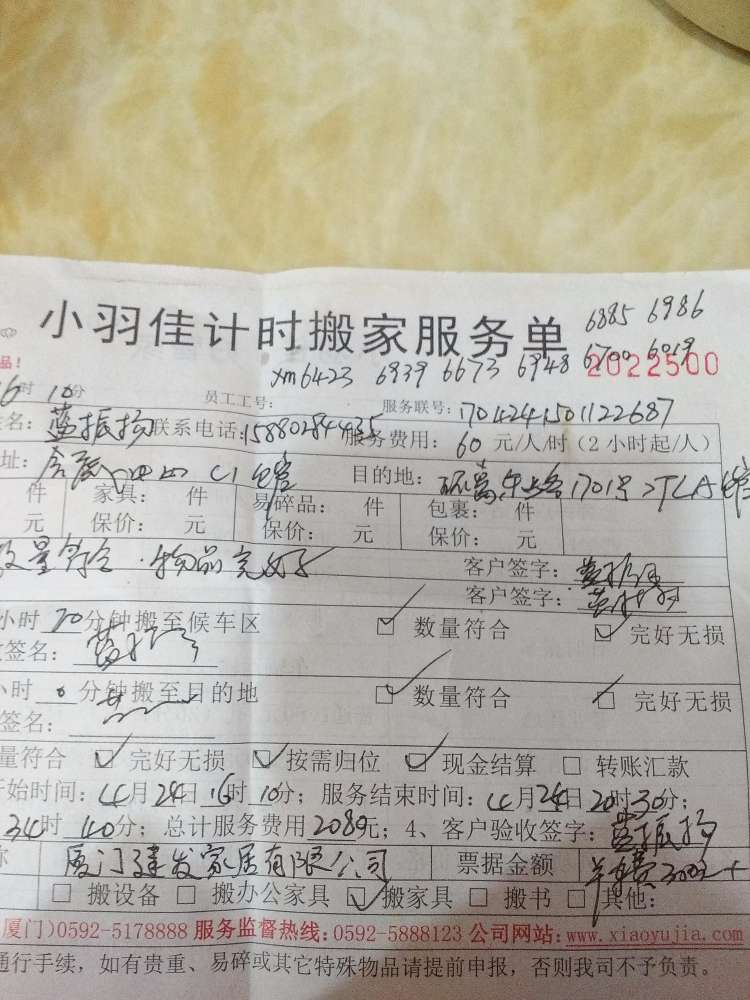 小羽佳计时搬家服务单 6885 6986
品! xm6423 6939 6673 6948 6700 6019 2022500
16时10分 员工工号: 服务联号:17014241501122687
名: 蓝振扬 联系电话:15880284435 服务费用: 60 元/人/时 (2小时起/人)
址: C1 目的地: 1701号
件 家具: 件 易碎品: 件 包裹: 件
元 保价: 元 保价: 元 保价: 元
数量符合.物品完好 客户签字: 蓝振扬
客户签字: 蓝振扬
小时 20分钟搬至候车区 ☑ 数量符合 ☑ 完好无损
签名: 蓝振扬
小时 分钟搬至目的地 ☑ 数量符合 ☑ 完好无损
签名:
量符合 ☑ 完好无损 ☑ 按需归位 ☑ 现金结算 □ 转账汇款
开始时间: 4月24日16时10分; 服务结束时间: 4月24日20时30分;
34时40分; 总计服务费用2080元; 4、客户验收签字: 蓝振扬
称 厦门建发家居有限公司 票据金额 300元+
□ 搬设备 □ 搬办公家具 ☑ 搬家具 □ 搬书 □ 其他:
厦门)0592-5178888 服务监督热线:0592-5888123 公司网站:www.xiaoyujia.com
通行手续, 如有贵重、易碎或其它特殊物品请提前申报, 否则我司不予负责。